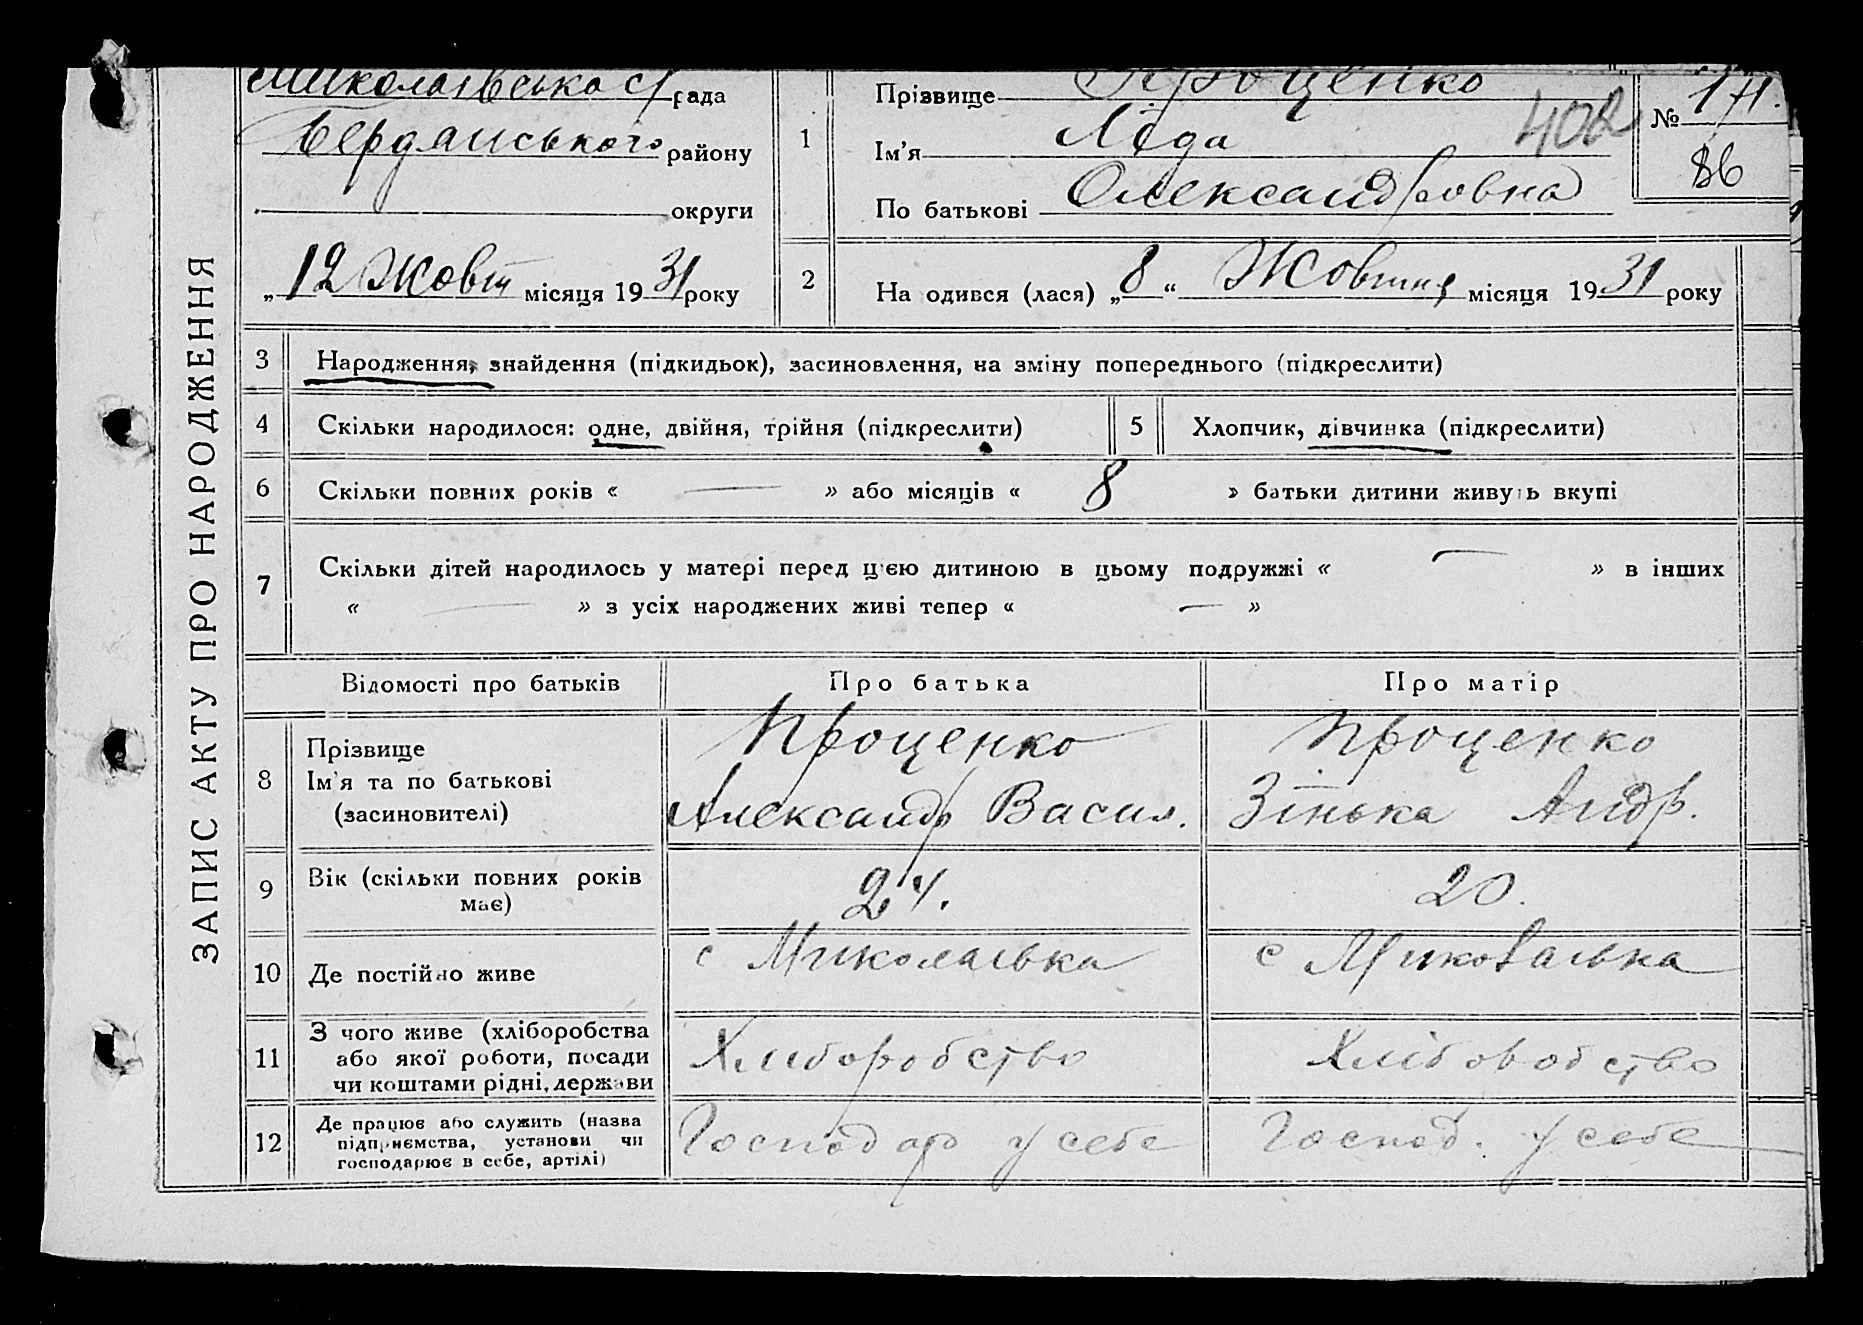 ЗАПИС АКТУ ПРО НАРОДЖЕННЯ
Миколаївська с/рада
Бердянського району
округи
„12 Жовт місяця 1931 року
1
Прізвище Проценко
Ім'я Ліда
По батькові Олександровна
402
№ 171.
86
2
На одився (лася) „8“ Жовтня місяця 1931 року
3 Народження, знайдення (підкидьок), засиновлення, на зміну попереднього (підкреслити)
4 Скільки народилося: одне, двійня, трійня (підкреслити) 5 Хлопчик, дівчинка (підкреслити)
6 Скільки повних років « — » або місяців « 8 » батьки дитини живуть вкупі
7 Скільки дітей народилось у матері перед цією дитиною в цьому подружжі « — » в інших
« — » з усіх народжених живі тепер « — »
Відомості про батьків Про батька Про матір
8 Прізвище
Ім'я та по батькові
(засиновителі)
Проценко
Александр Васил.
Проценко
Зінька Андр.
9 Вік (скільки повних років
має)
24.
20.
10 Де постійно живе с Миколаївка с Миколаївка
11 З чого живе (хліборобства
або якої роботи, посади
чи коштами рідні, держави
Хліборобство
Хлібовобство
12 Де працює або служить (назва
підприємства, установи чи
господарює в себе, артілі)
Господар у себе
Господ. у себе